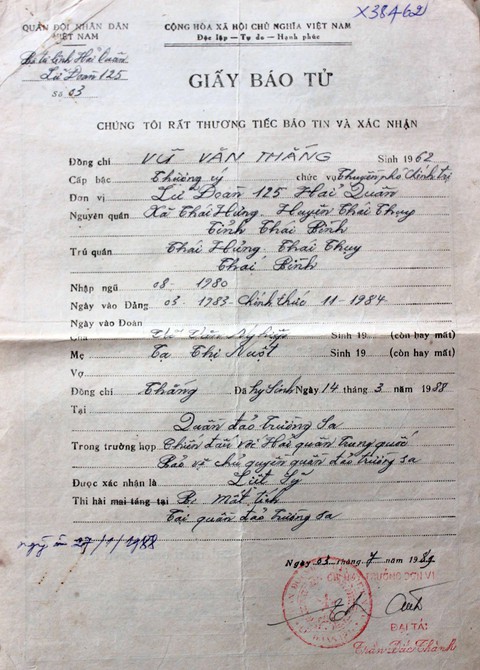 X38462
QUÂN ĐỘI NHÂN DÂN
VIỆT NAM
Bộ tư lệnh Hải Quân
Lữ Đoàn 125
Số 03
CỘNG HÒA XÃ HỘI CHỦ NGHĨA VIỆT NAM
Độc lập — Tự do — Hạnh phúc
GIẤY BÁO TỬ
CHÚNG TÔI RẤT THƯƠNG TIẾC BÁO TIN VÀ XÁC NHẬN
Đồng chí VŨ VĂN THẮNG Sinh 1962
Cấp bậc Thượng úy chức vụ Thuyền phó Chính trị
Đơn vị Lữ Đoàn 125 Hải Quân
Nguyên quán Xã Thái Hưng. Huyện Thái Thuỵ
Tỉnh Thái Bình
Trú quán Thái Hưng. Thái Thuỵ
Thái Bình
Nhập ngũ 08 - 1980
Ngày vào Đảng 03 - 1983 - Chính thức 11 - 1984
Ngày vào Đoàn
Cha Vũ Văn Sinh 19 (còn hay mất)
Mẹ Tạ Thị Nuột Sinh 19 (còn hay mất)
Vợ
Đồng chí Thắng Đã hy sinh Ngày 14 tháng 3 năm 1988
Tại
Quần đảo trường Sa
Trong trường hợp Chiến đấu với Hải quân trung quốc
Bảo vệ chủ quyền quần đảo trường sa
Được xác nhận là Liệt Sỹ
Thi hài mai táng tại Bị mất tích
Tại quần đảo trường sa
27/1/1988
Ngày 03 tháng 7 năm 1989
TRƯỞNG ĐƠN VỊ
ĐẠI TÁ:
Trần Đắc Thành